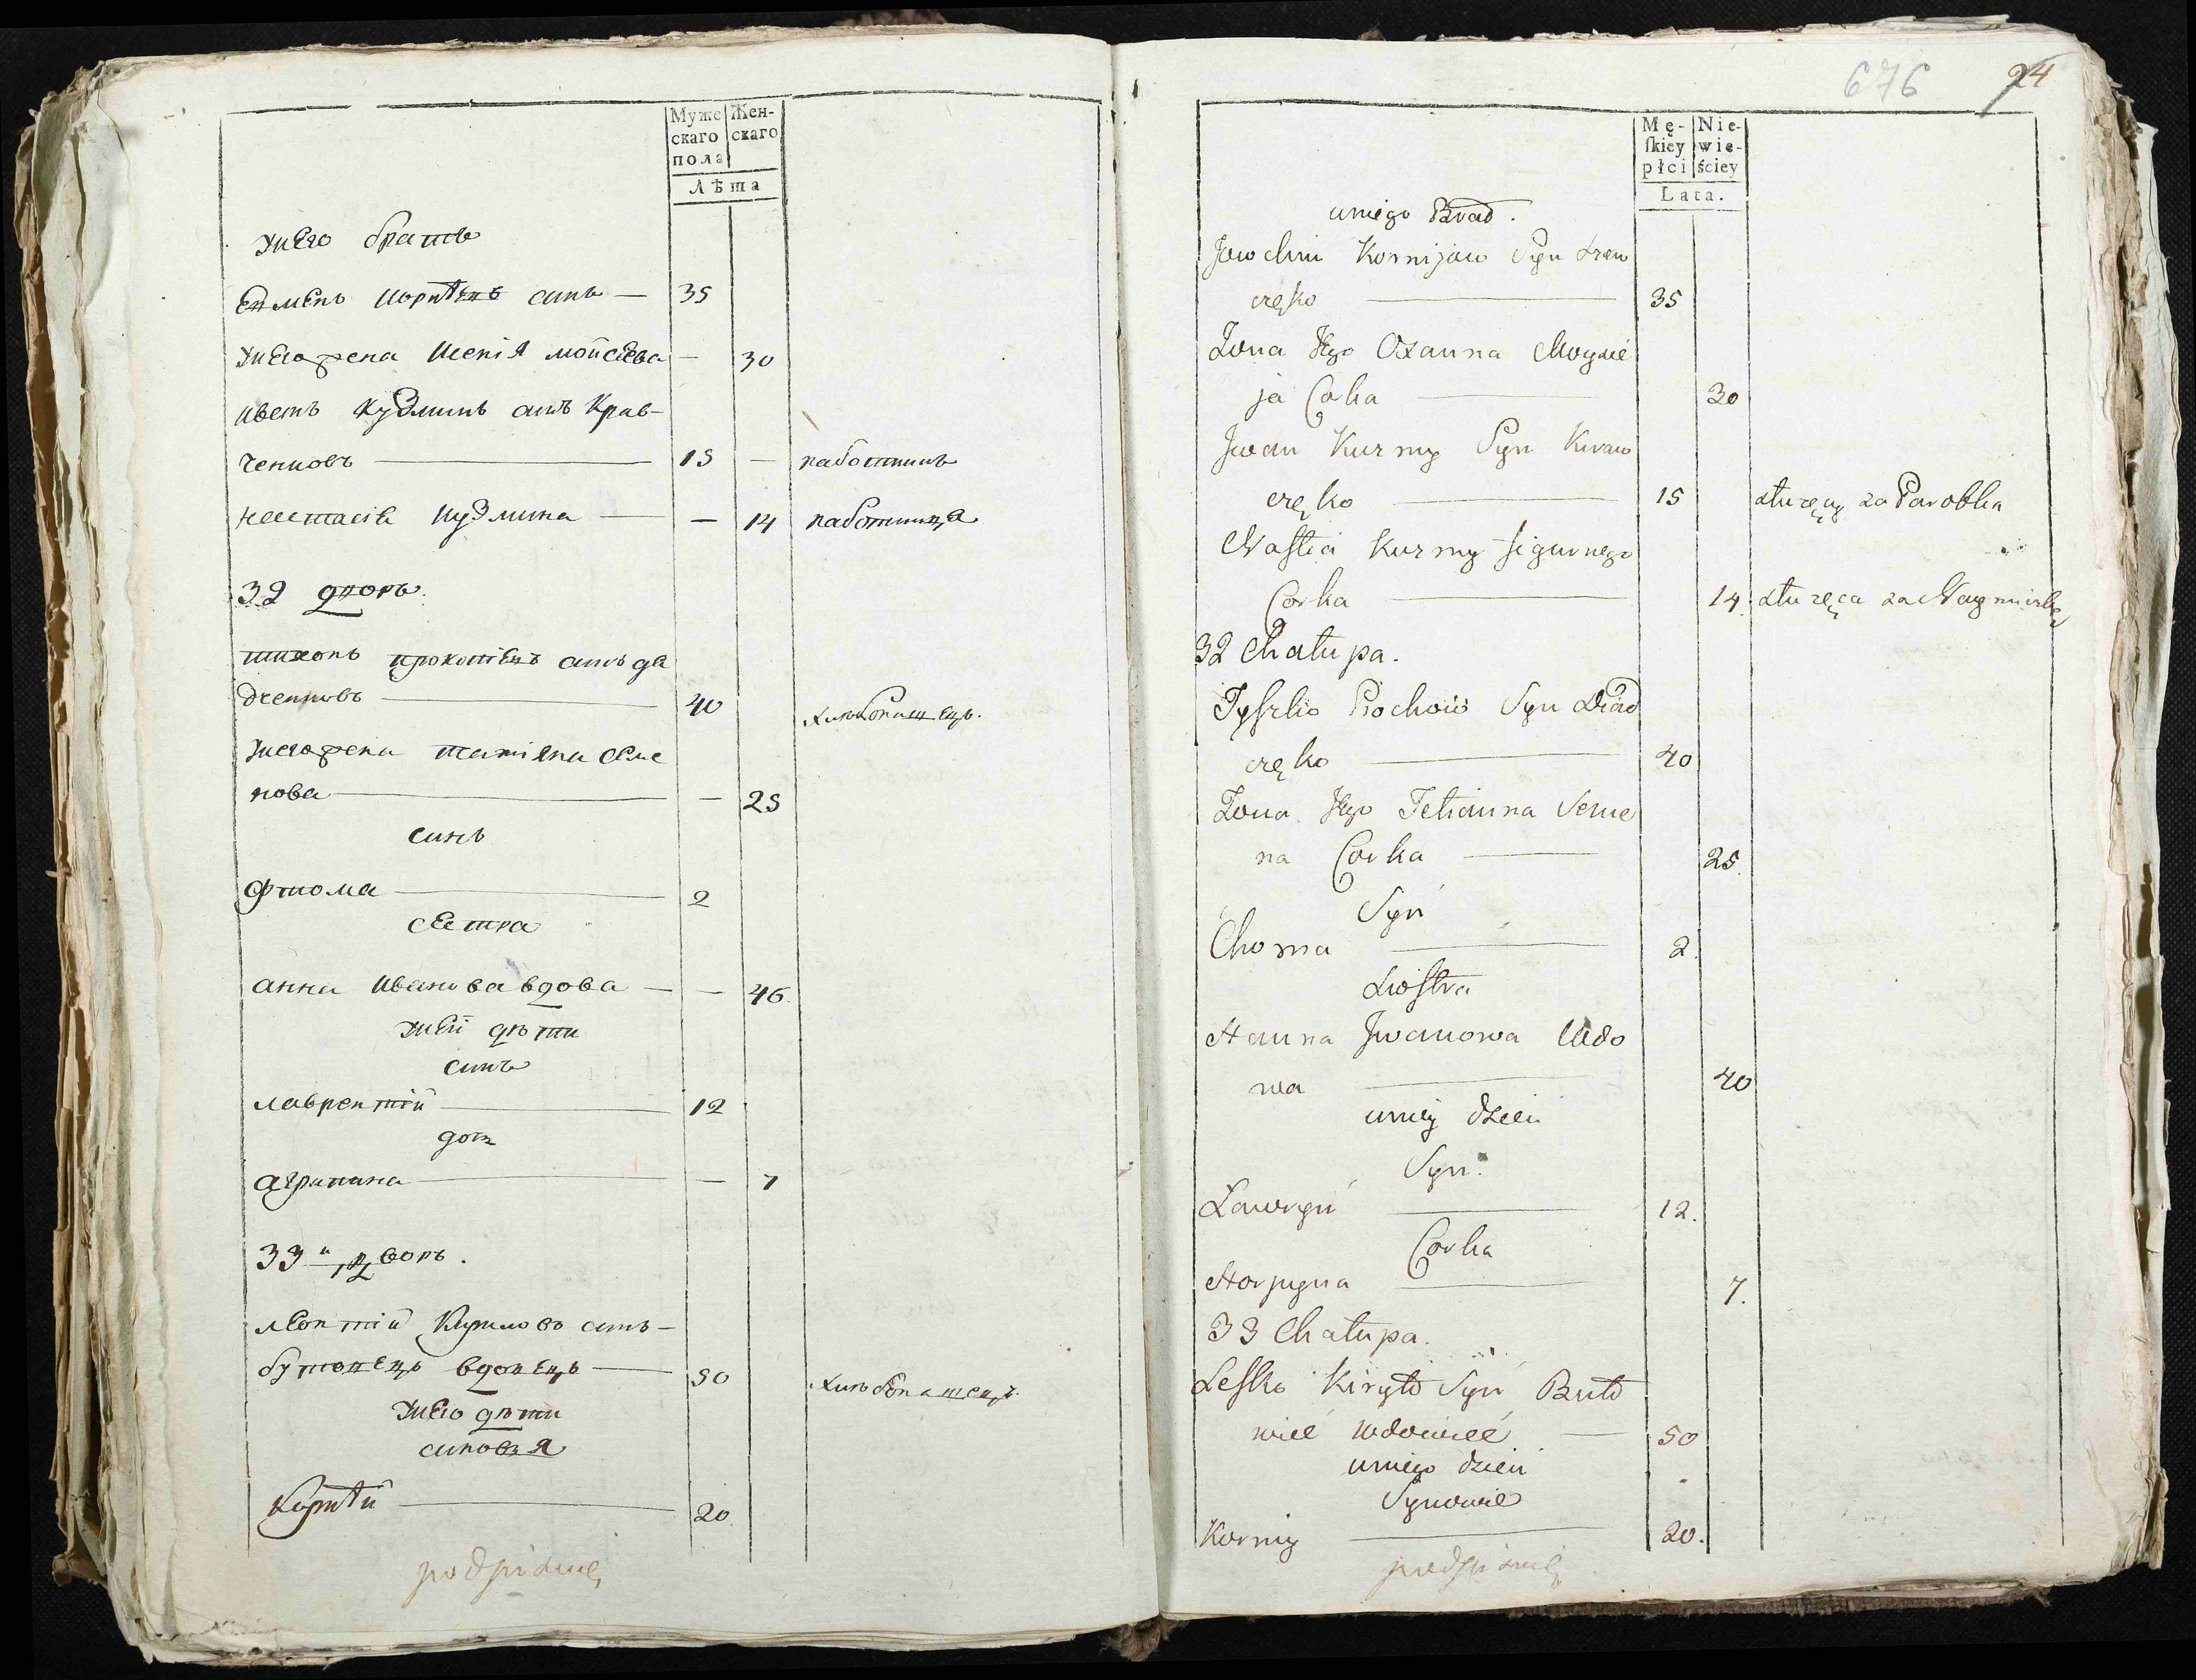 Муже Жен-
скаго скаго
пола
Лѣта
унего братъ
Евменъ Корнѣевъ синъ — 35
унегожена Ксенія мойсеева — 30
иванъ Кузминъ синъ Крав-
ченковъ — 15 — работникъ
Настасія Кузмина — — 14 работница
32 дворъ.
тихонъ прокопіевъ синъ дя
дченковъ — 40 хлѣбопашецъ.
унегожена татіяна Семе
нова — — 25
синъ
Фтома — 2
сестра
анна Иванова вдова — — 46.
унеи дѣти
синъ
лаврентій — 12
дочь
агрипина — — 7
33й дворъ.
леонтій Кириловъ синъ —
бутовецъ вдовецъ — 50 хлѣбопашецъ.
унего дѣти
сыновья
Корнѣй — 20
podpisuię
676 24
Mę- Nie-
ſkiey wie-
płci ściey
Lata.
uniego Brad.
Jowchim Kornijow Syn Kraw
częko — 35
Zona Jego Oxanna Moysie
ja Corka — 30
Jwan Kuzmy Syn Kraw
częko — 15 słuzący za Parobka
Naſtia Kuzmy
Corka — 14. słuząca za Naymiczkę
32 Chałupa.
Prochow Syn Diad
częko — 40
Zona Jego Tetianna Seme
na Corka — 25.
Syn
Choma — 2.
Sioſtra
Hanna Jwanowa Wdo
wa — 40
uniey dzieci
Syn.
Lawryn — 12.
Corka
Horpyna — 7.
33 Chałupa.
Leſko Kiryło Syn Buto
wiec wdowiec — 50
uniego dzieci
Synowie
Korniy — 20.
podpisuię